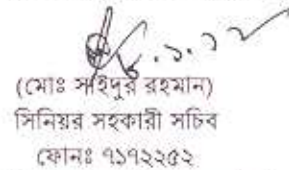 ৮.১.১২
(মোঃ সাইদুর রহমান)
সিনিয়র সহকারী সচিব
ফোনঃ ৭১৭২২৫২